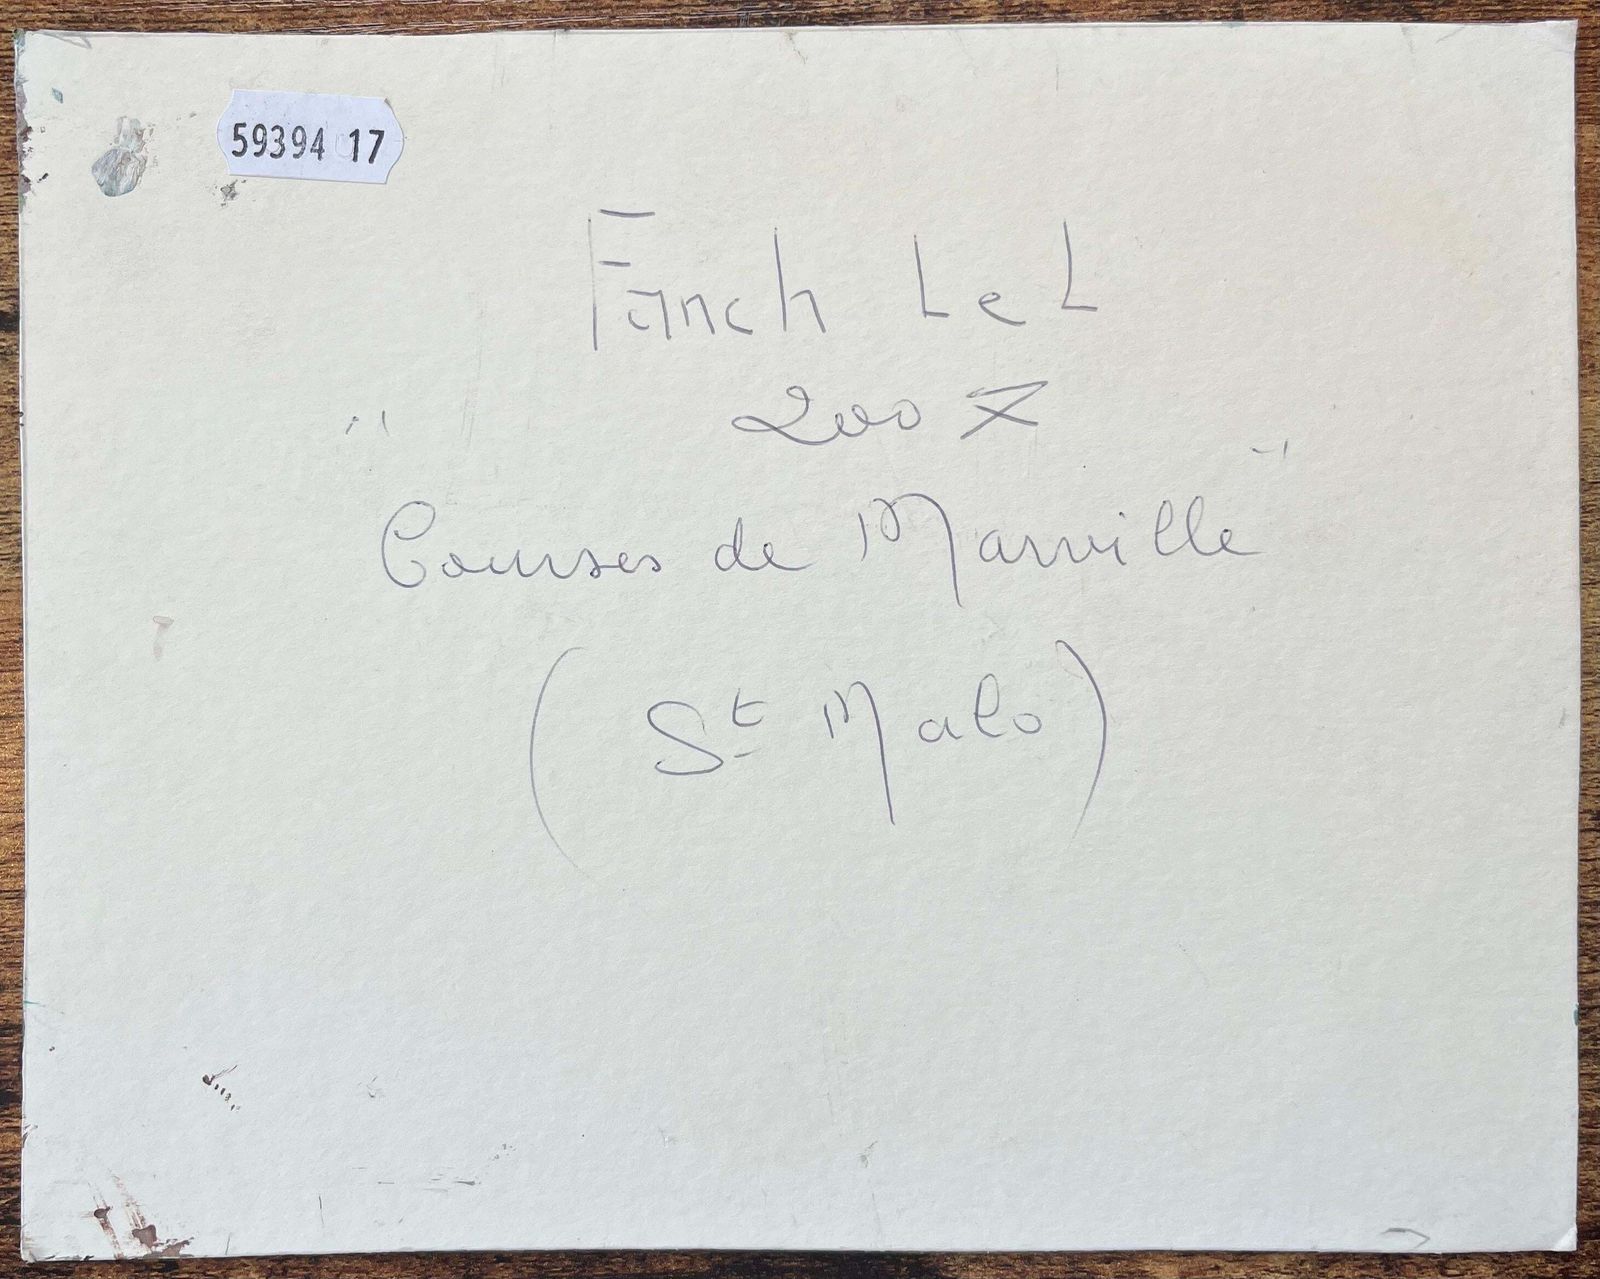 59394 17
Fanch Le L
2007
"Courses de Marville"
(St Malo)